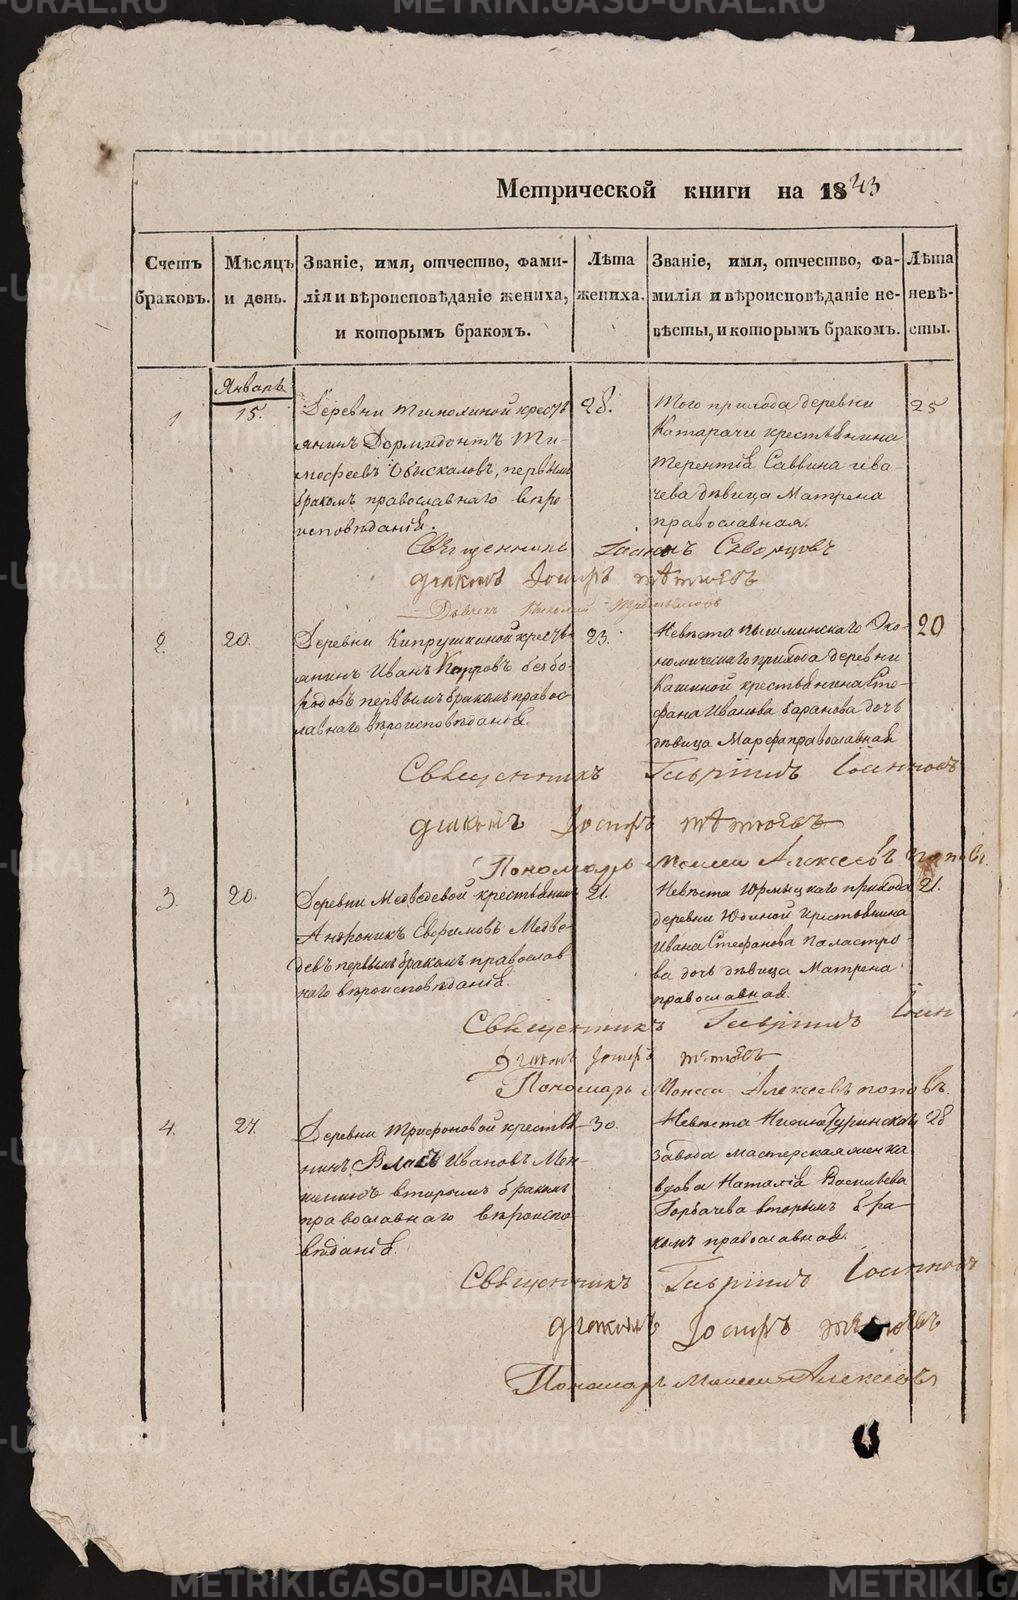 METRIKI.GASO-URAL.RU
Метрической книги на 1843
Счетъ браковъ.
Мѣсяцъ и день.
Званіе, имя, отчество, фами-
лія и вѣроисповѣданіе жениха,
и которымъ бракомъ.
Лѣта жениха.
Званіе, имя, отчество, фа-
милія и вѣроисповѣданіе не-
вѣсты, и которымъ бракомъ.
Лѣта невѣ-
сты.
Январь
1
15.
Деревни крестья
янинъ Дормидонтъ Ти-
мофеевъ Обыскаловъ, первымъ
бракомъ православнаго вѣро
исповѣданія.
28.
Того прихода деревни
Катарачи крестьянина
Терентія Саввина
дѣвица Матрена
православная.
25
Священникъ Іоаннъ Скворцовъ
Діаконъ Іосифъ
2
20.
Деревни Кипрушкиной крестья
янинъ Иванъ Карповъ безбо-
родовъ первымъ бракомъ правос-
лавнаго вѣроисповѣданія.
23.
Невѣста Пышминскаго Эко-
номическаго прихода деревни
Кашиной крестьянина Сте-
фана Иванова Баранова дочь
дѣвица Марфа православная
20
Священникъ Гавріилъ Іоанновъ
Діаконъ Іосифъ
Пономарь Моисей Алексеевъ Поповъ
3
20.
Деревни Медведевой крестьянинъ
Андроникъ Евфимовъ Медве-
девъ первымъ бракомъ православ
наго вѣроисповѣданія.
21.
Невѣста Юрмыцкаго прихода
деревни Юдиной крестьянина
Ивана Стефанова Паластро-
ва дочь дѣвица Матрена
православная.
21.
Священникъ Гавріилъ Іоан
Діаконъ Іосифъ
Пономарь Моисей Алексеевъ Поповъ.
4.
27.
Деревни Трифоновой крестья
нинъ Власъ Ивановъ Мен-
вторымъ бракомъ
православнаго вѣроиспо
вѣданія.
30.
Невѣста Нижнетуринскаго
завода мастерская женка
вдова Наталія Васильева
Горбачева вторымъ бра-
комъ православная.
28
Священникъ Гавріилъ Іоанновъ
Діаконъ Іосифъ
Пономарь Моисей Алексеевъ